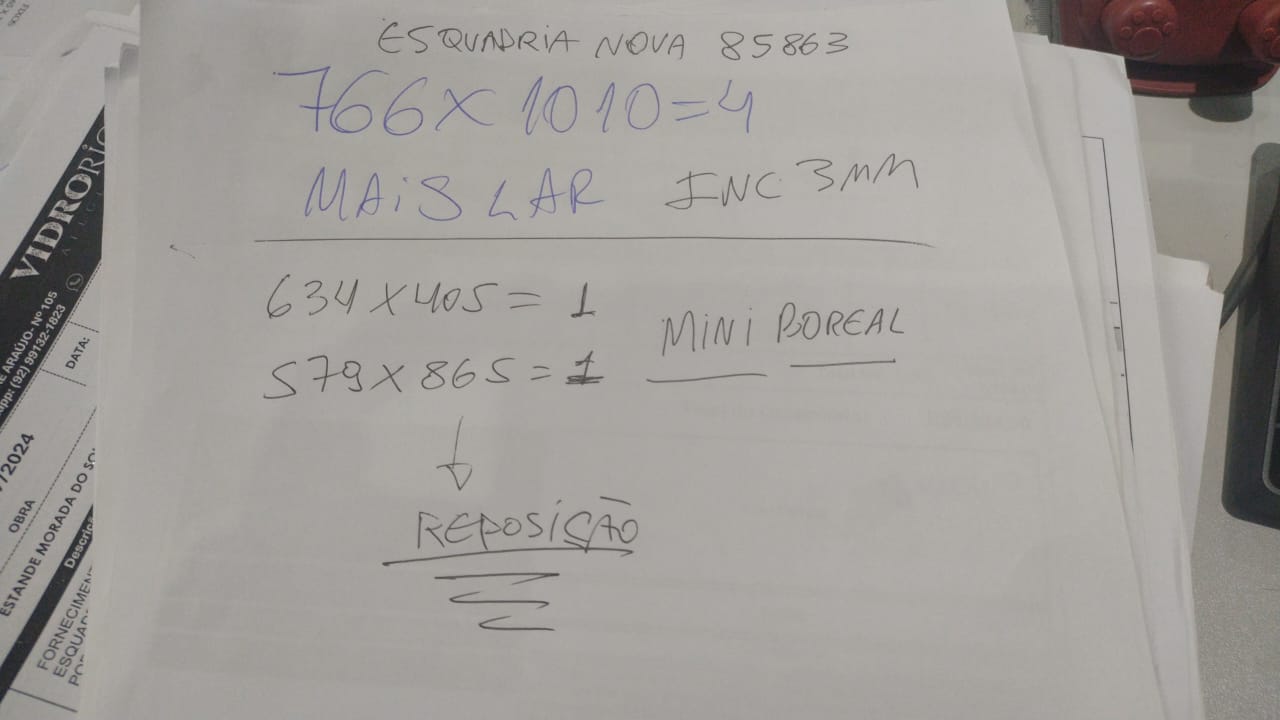 ESQUADRIA NOVA 85863
766X1010=4
MAIS LAR INC 3MM
634X405=1
579X865=1
MINI BOREAL
REPOSIÇÃO
VIDRORIO
ARAÚJO- Nº 105
app: (92) 99132-1823
DATA:
/2024
OBRA
ESTANDE MORADA DO
Descriç
FORNECIMEN
ESQUAD